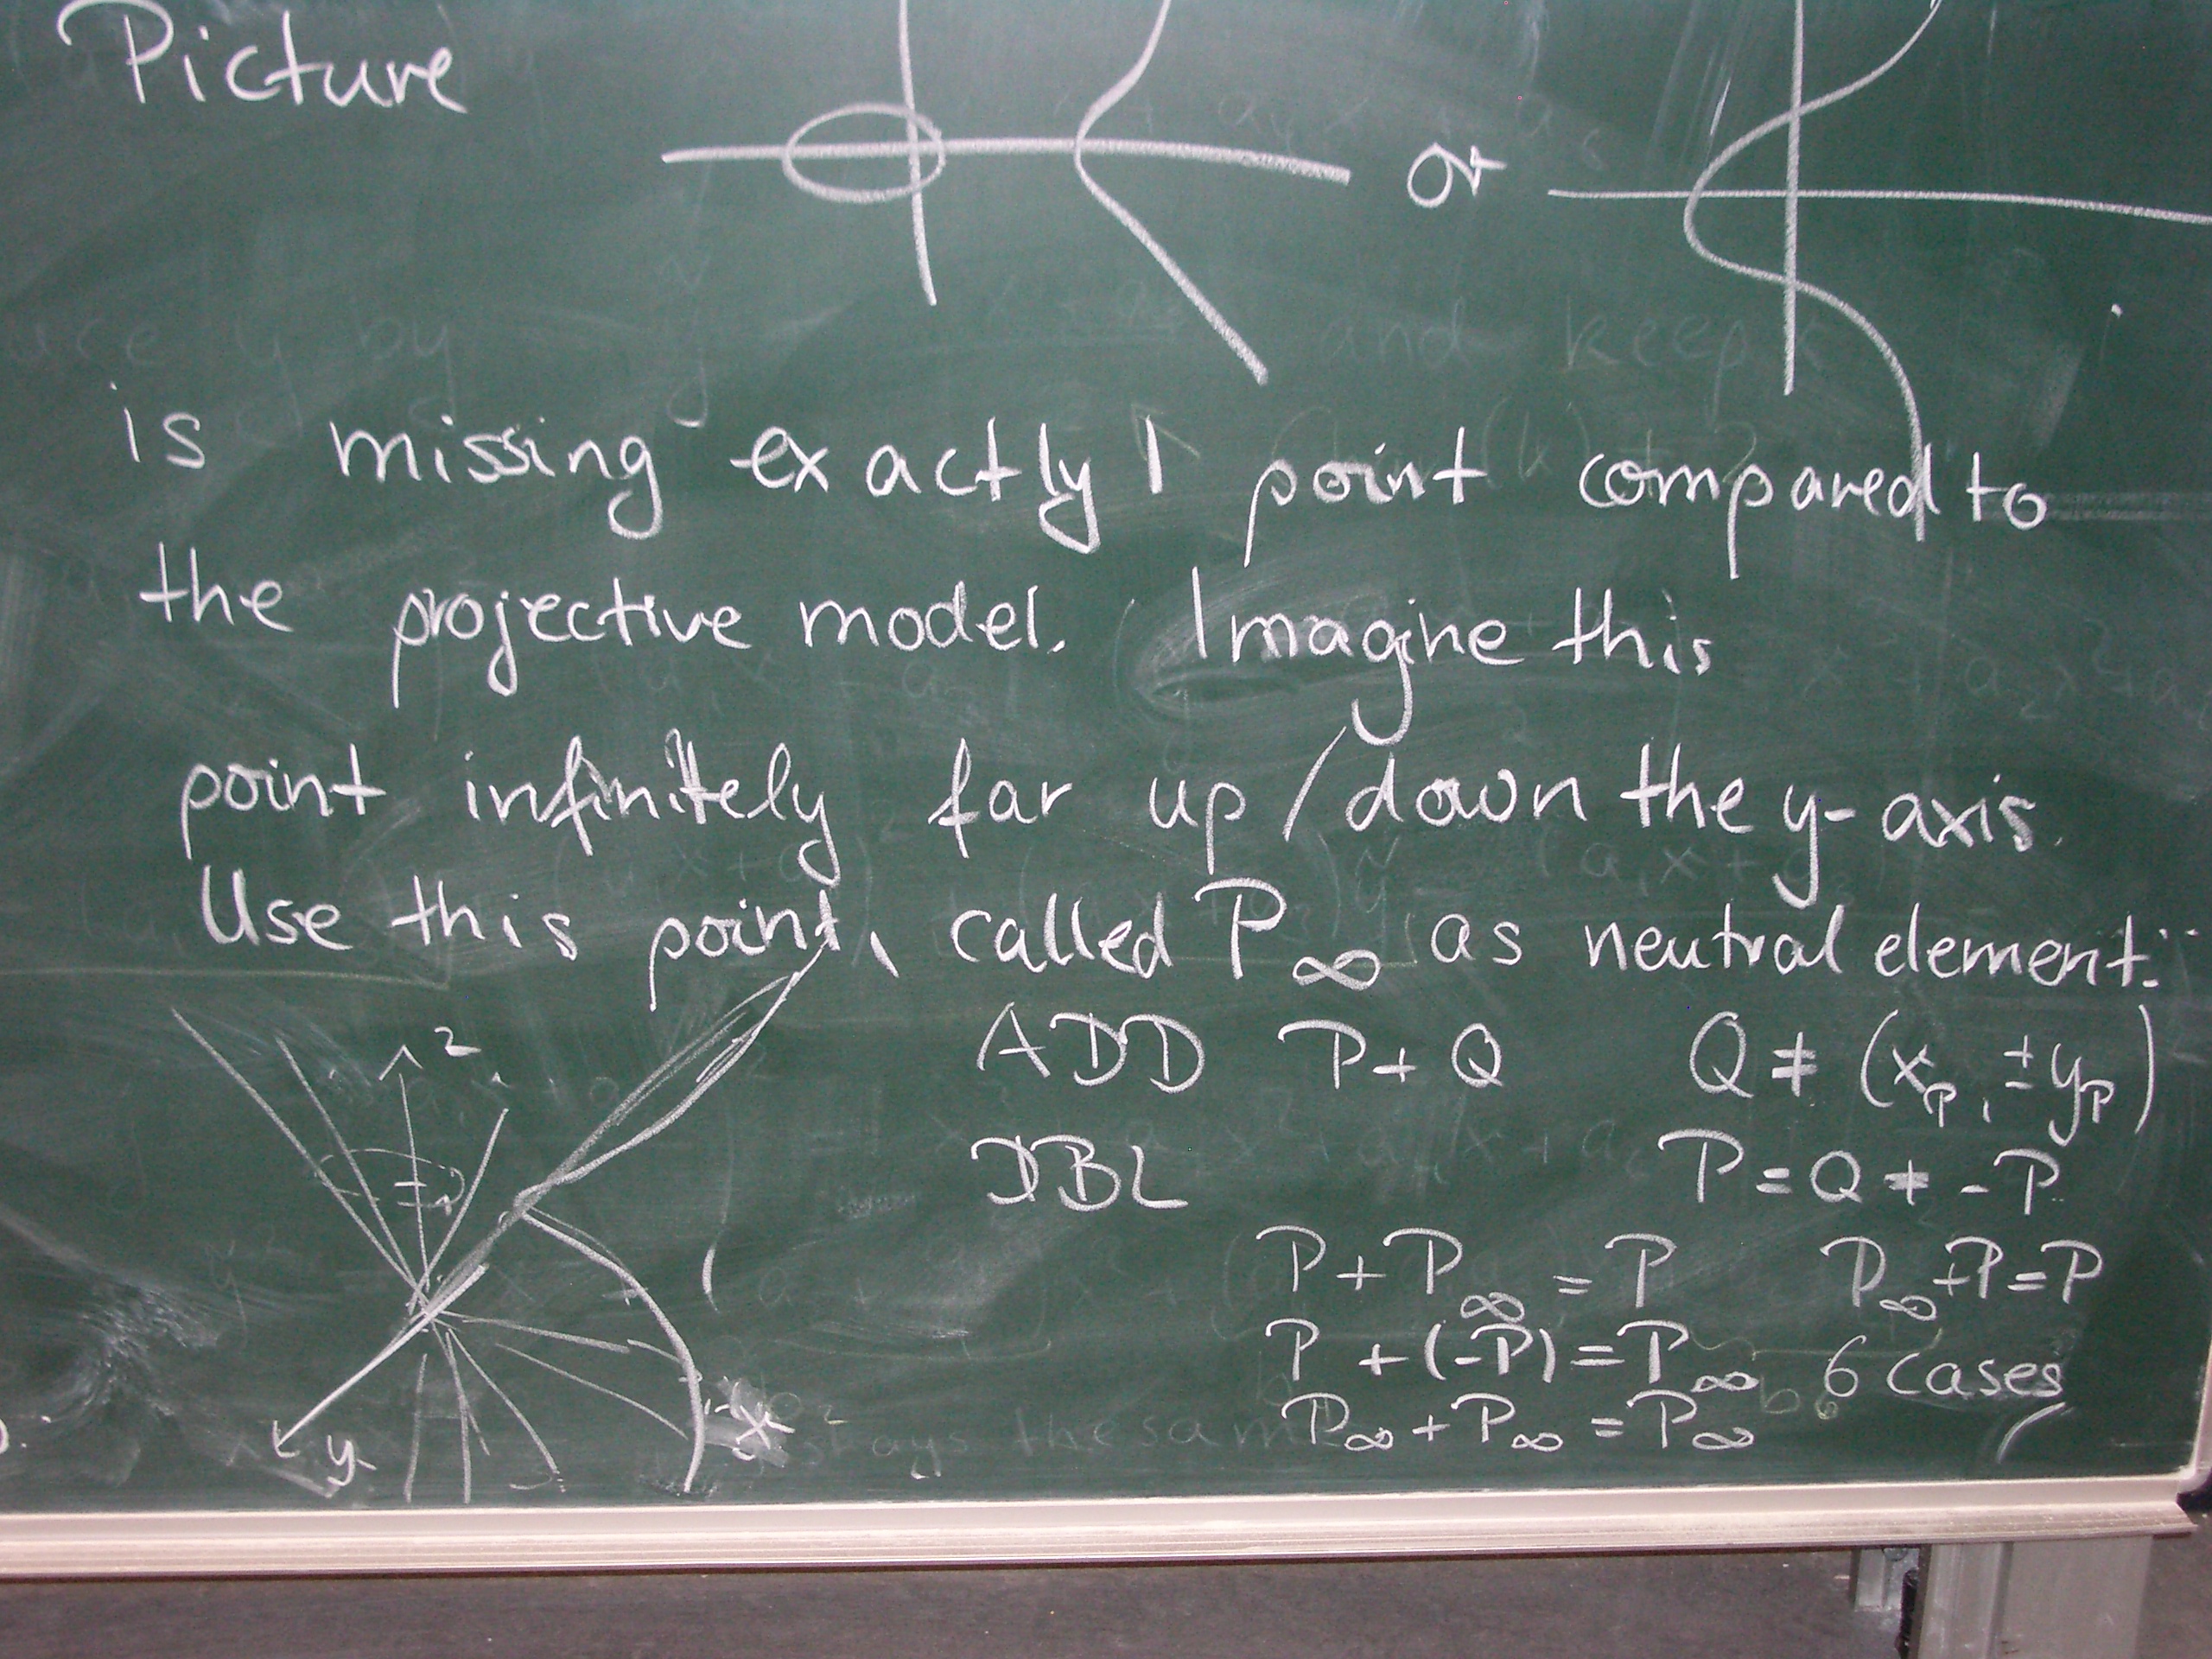 Picture
or
is missing exactly 1 point compared to
the projective model. Imagine this
point infinitely far up/down the y-axis.
Use this point, called P∞ as neutral element:
ADD P+Q Q ≠ (x_P, ±y_P)
DBL P=Q ≠ -P
P+P∞ = P P∞+P=P
P +(-P)=P∞ 6 cases
P∞+P∞ =P∞
z
y
x